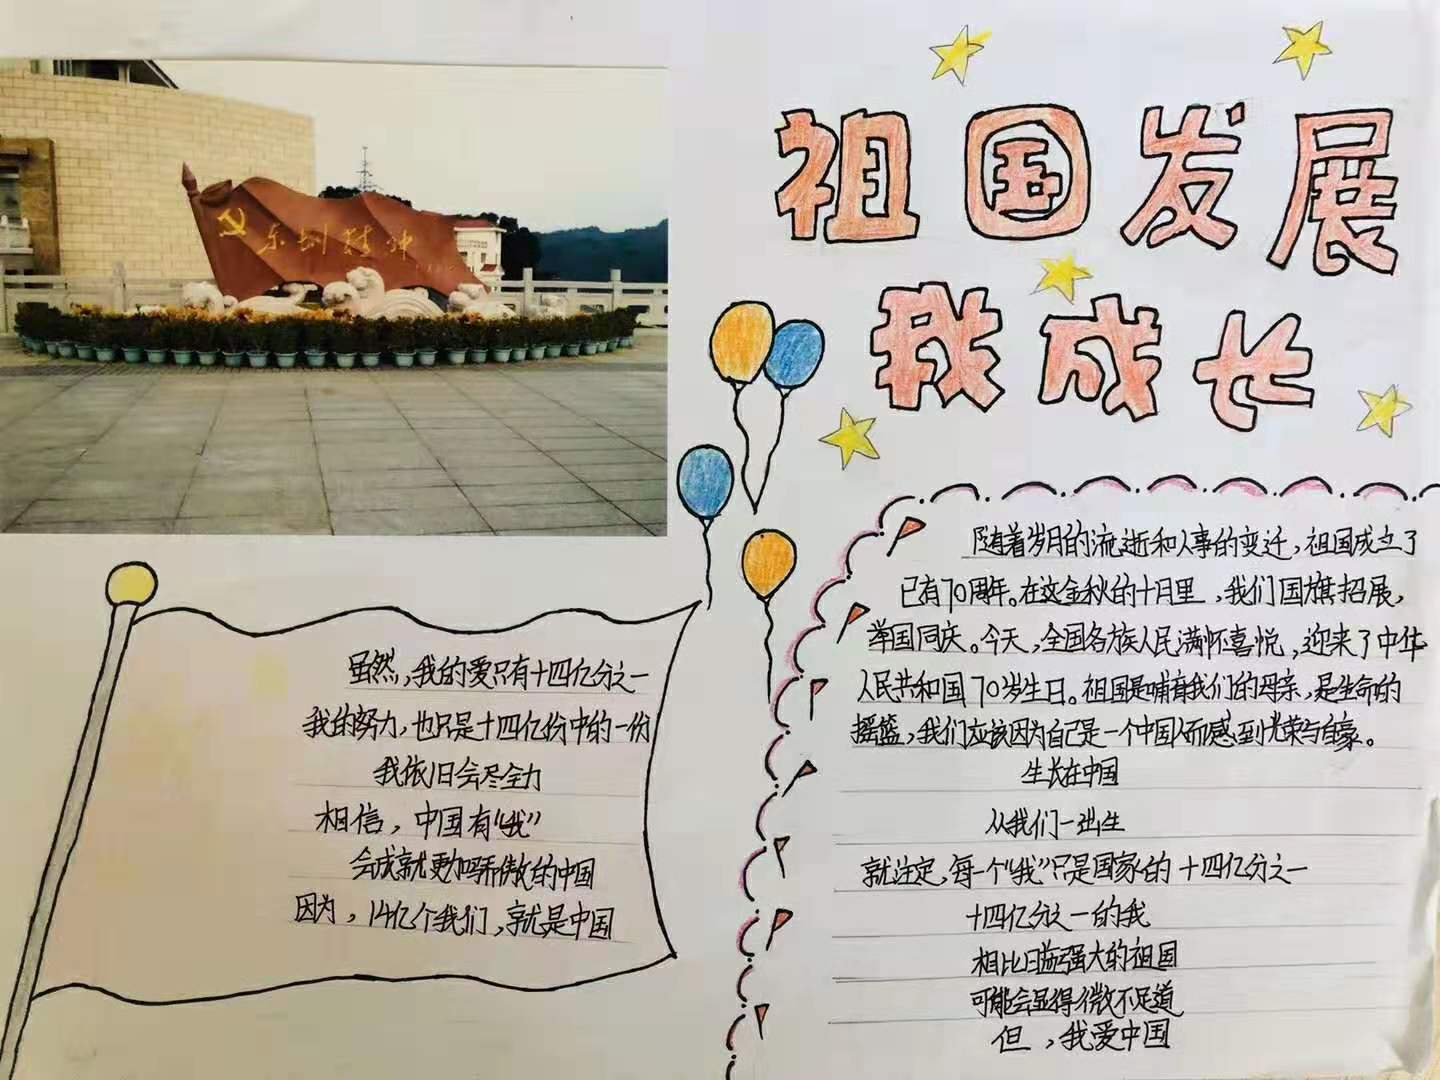 祖国发展
我成长
东圳精神
随着岁月的流逝和人事的变迁，祖国成立了
已有70周年。在这金秋的十月里，我们国旗招展，
举国同庆。今天，全国各族人民满怀喜悦，迎来了中华
人民共和国70岁生日。祖国是哺育我们的母亲，是生命的
摇篮，我们应该因为自己是一个中国人而感到光荣与自豪。
生长在中国
从我们一出生
就注定，每一个“我”只是国家的十四亿分之一
十四亿分之一的我
相比日益强大的祖国
可能会显得微不足道
但，我爱中国
虽然，我的爱只有十四亿分之一
我的努力，也只是十四亿份中的一份
我依旧会尽全力
相信，中国有“我”
会成就更加骄傲的中国
因为，14亿个我们，就是中国